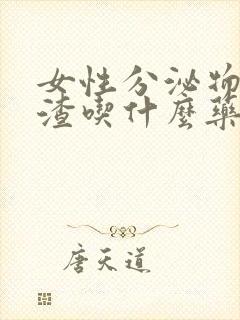 女性分泌物
渣喫什麼藥
唐天道